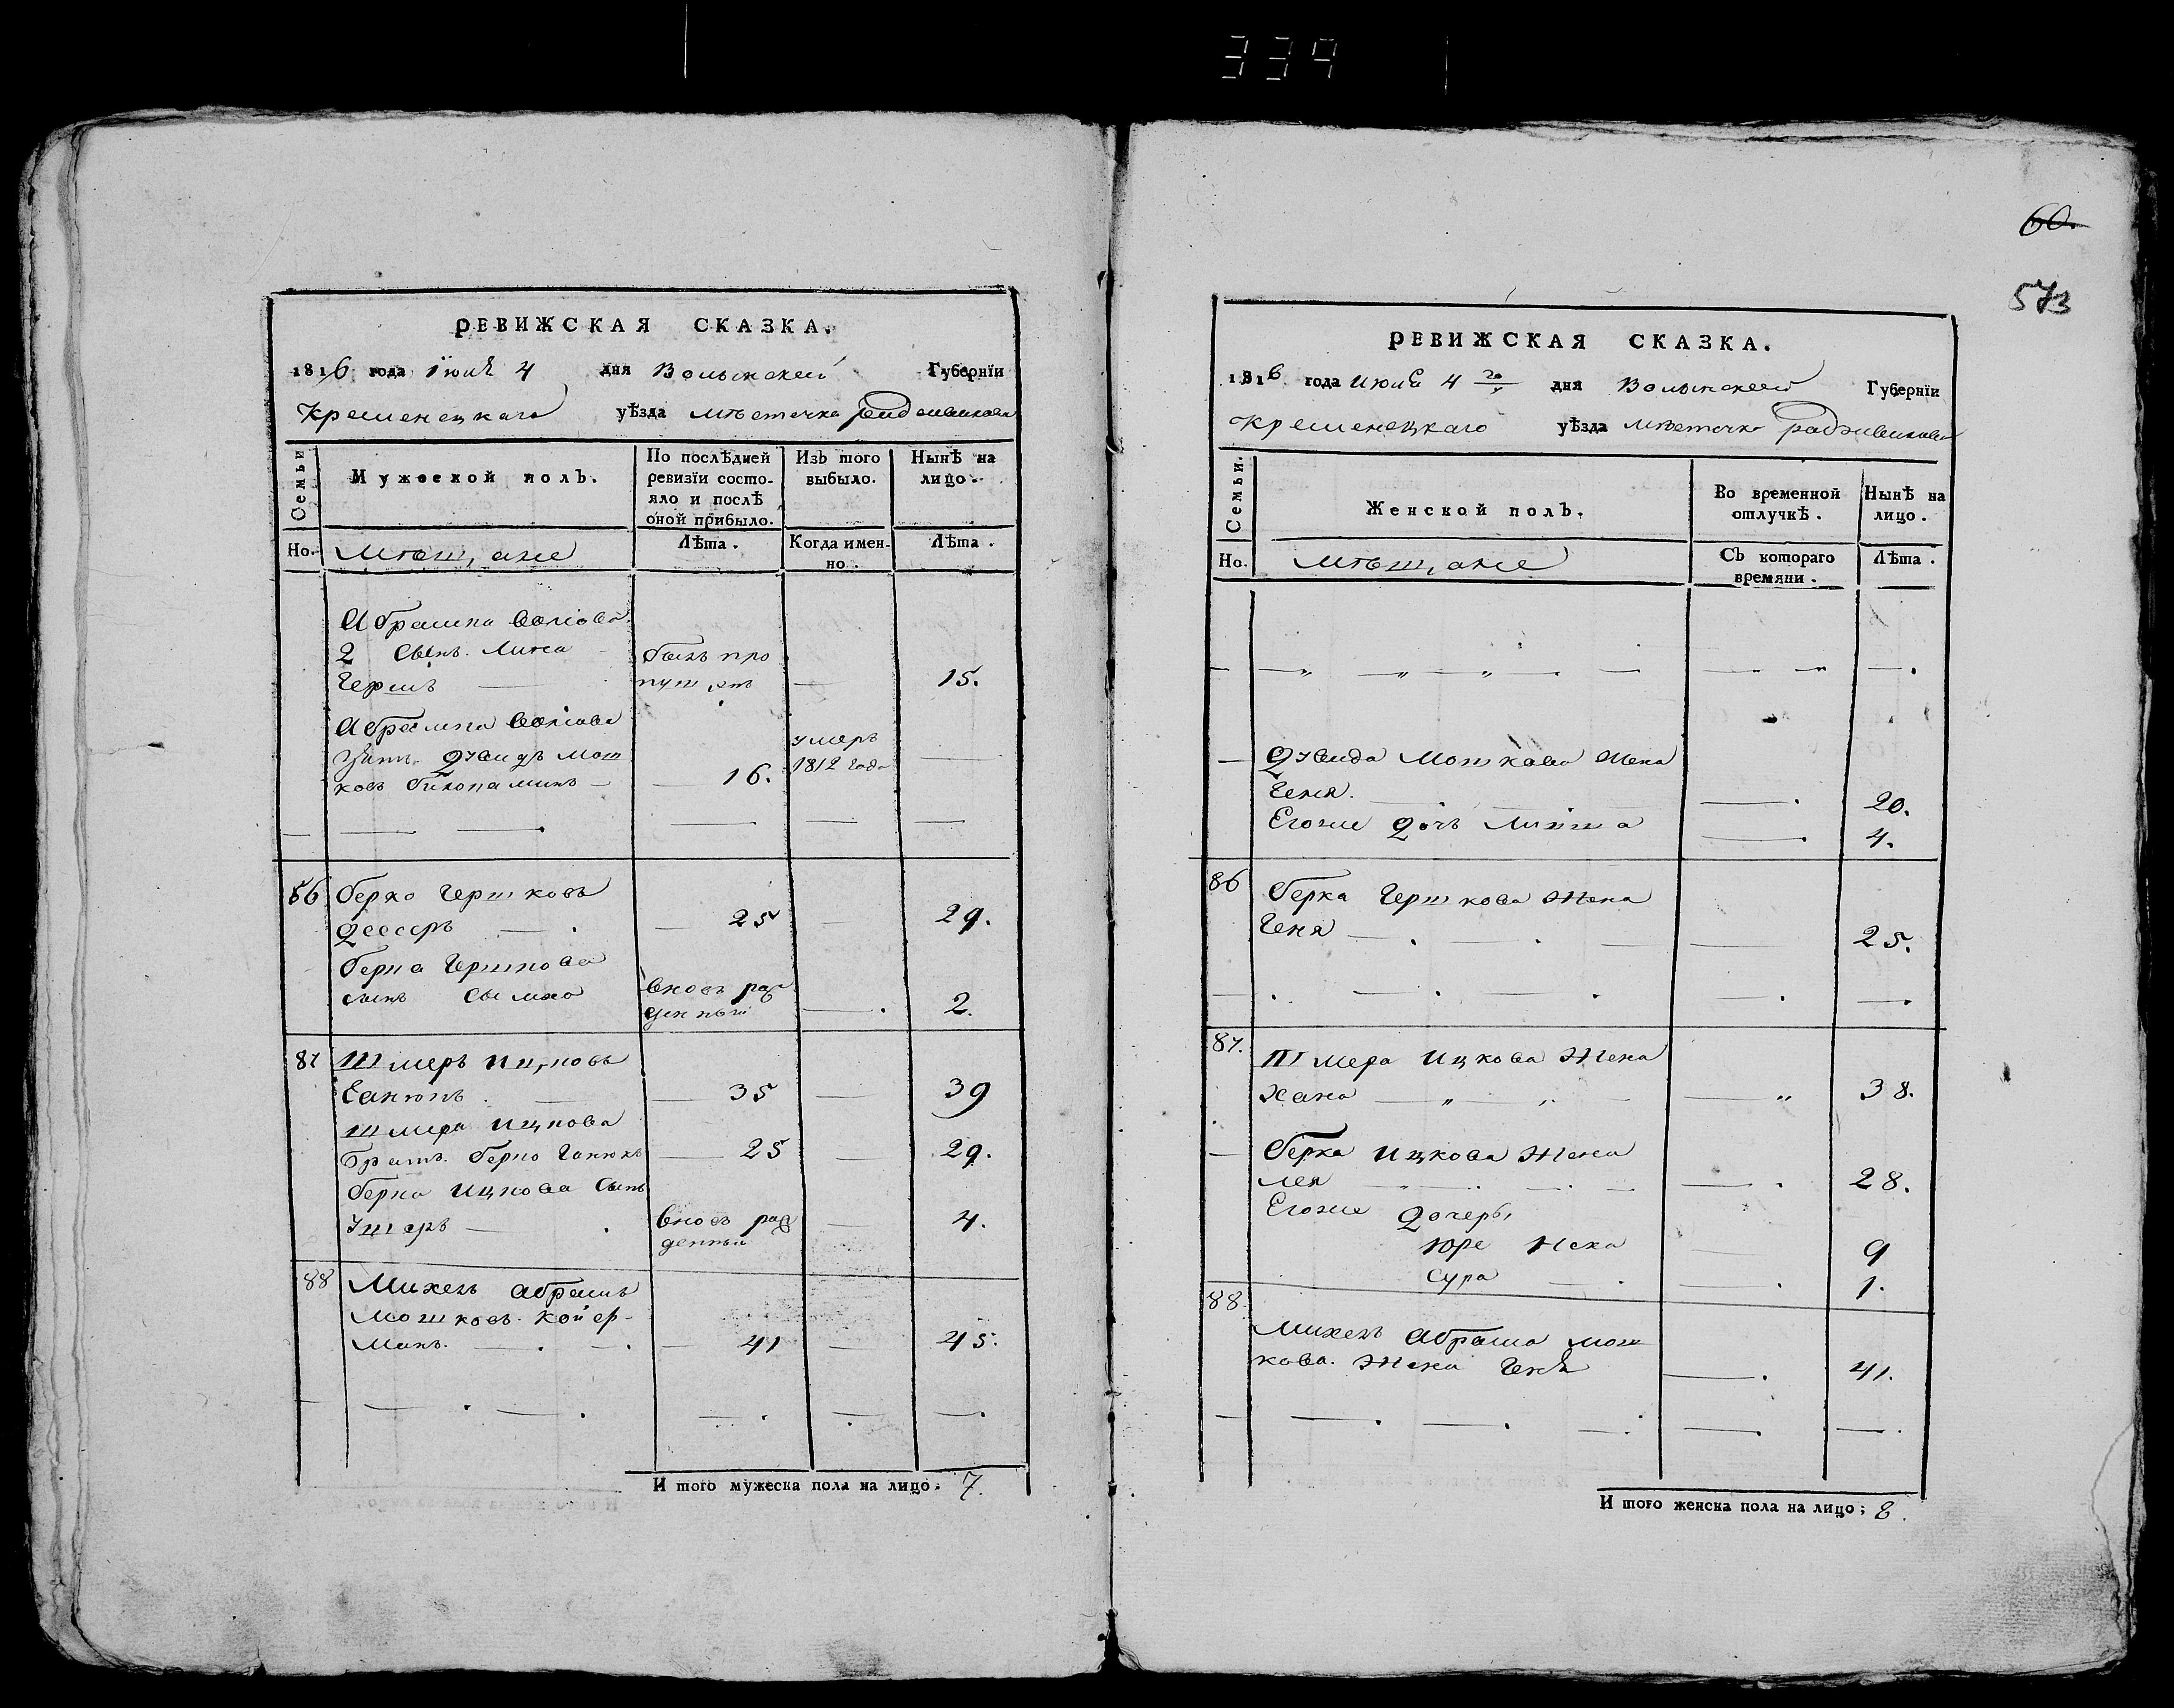 339
РЕВИЖСКАЯ СКАЗКА.
1816 года Iюля 4 дня Волынской Губернїи
Кременецкаго уѣзда мѣстечка Радзивилова
Семьи
Мужеской полъ.
По послѣдней ревизїи состо-
яло и послѣ
оной прибыло.
Изъ того
выбыло.
Нынѣ на
лицо.
Но.
Мѣщане
Лѣта.
Когда имен-
но.
Лѣта.
Абрамка Волкова
2 Сынъ. Лика
Гершъ — былъ про
пущенъ — 15.
Абрамка Волкова
Зять. Дувидъ Мош
ковъ — 16. умеръ
1812 года —
86 Берко Гершковъ
— 25 — 29.
Берка Гершкова
сынъ Сымха вновь рож
денный — 2.
87 Шмеръ Ицковъ
Ганюкъ — 35 — 39
Шмера Ицкова
Братъ. Берко Ганюкъ — 25 — 29.
Берка Ицкова Сынъ
Ушеръ — вновь рож
денный — 4.
88 Михель Абрамъ
Мошковъ. Койфер-
манъ. — 41 — 45.
И того мужеска пола на лицо. 7.
60.
573
РЕВИЖСКАЯ СКАЗКА.
1816 года Июля 4 го дня Волынской Губернїи
Кременецкаго уѣзда мѣстечка Радзивилова
Семьи.
Женской полъ.
Во временной
отлучкѣ.
Нынѣ на
лицо.
Но.
Мѣщане
Съ котораго
времяни.
Лѣта.
— Дувида Мошкова Жена
Геня. — 20.
Егоже Дочь — 4.
86 Берка Гершкова Жена
Геня — 25.
87. Шмера Ицкова Жена
Хана — 38.
— Берка Ицкова Жена
Лея — 28.
Егоже Дочеры
— 9
Сура — 1.
88. Михель Абрама Мош
кова. Жена Геня — 41.
И того женска пола на лицо; 8.